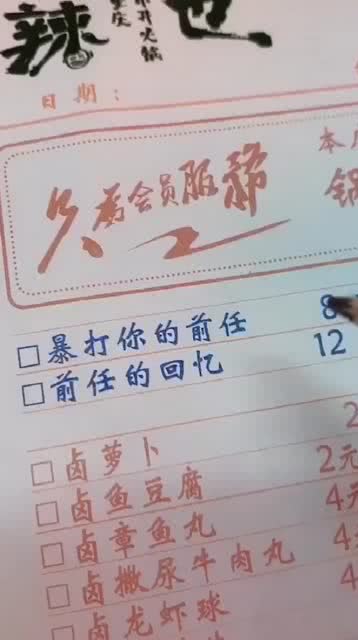 辣也
重庆
市井火锅
日期：
本
锅
会员服
□暴打你的前任 8
□前任的回忆 12
2
□卤萝卜 2元
□卤鱼豆腐 4元
□卤章鱼丸 4
□卤撒尿牛肉丸 4
□卤龙虾球